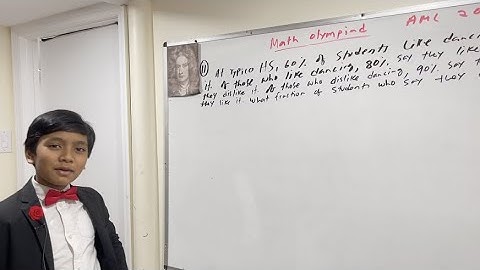 Math olympiad AMC 20
11) At Typico HS, 60% of students like dancin
it. Of those who like dancing, 80% say they like
they dislike it. Of those who dislike dancing, 90% say t
they like it. What fraction of students who say they